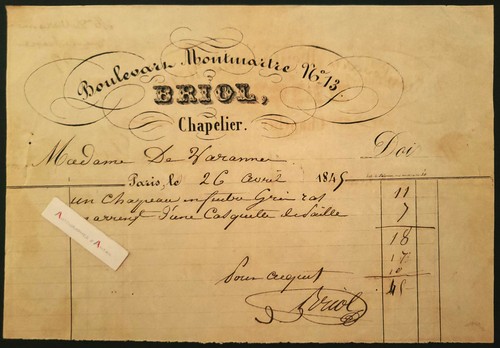 Boulevart Montmartre No. 13.
BRIOL,
Chapelier.
Madame De Varannes Doit
Paris, le 26 avril 1845
un chapeau Gris ras 11
d'une Casquette de paille 7
18
17
45
pour acquit
Briol